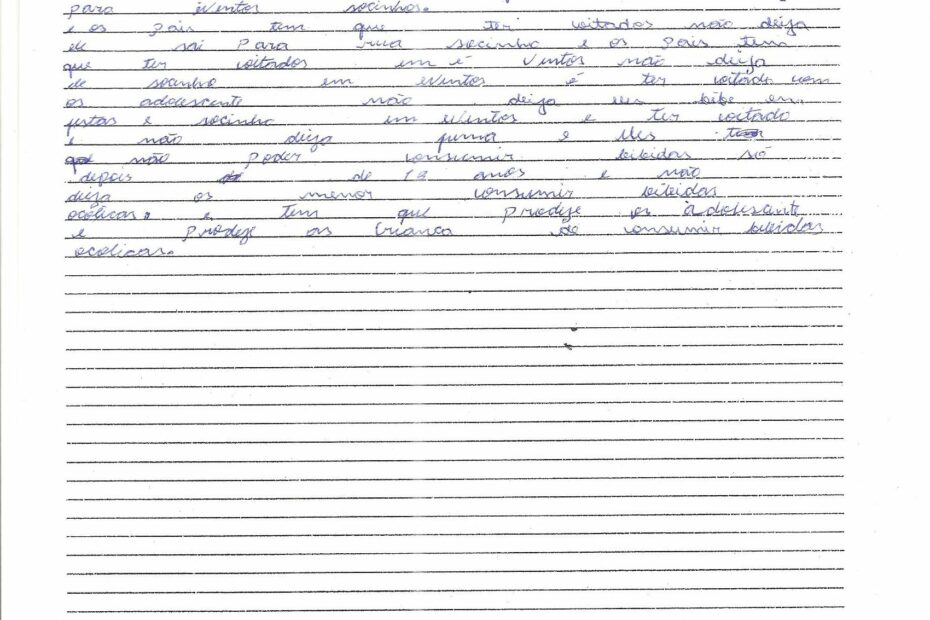 para eventos socinhos.
e os pais tem que ter coitados não deija
ele sai para rua socinho e os pais tem
que ter coitados em é ventos não deija
de socinho em eventos é ter coitado com
os adolescente não deija eles bibe en.
festas e socinho em eventos e ter coitado
e não deija fuma e eles tem
que não poder consumir bibidas só
depois de 18 anos e não
deija os menor consumir bibidas
ocolicas. e tem que prodije os adolesante
e prodije as criança de consumir bibidas
ocolicas.